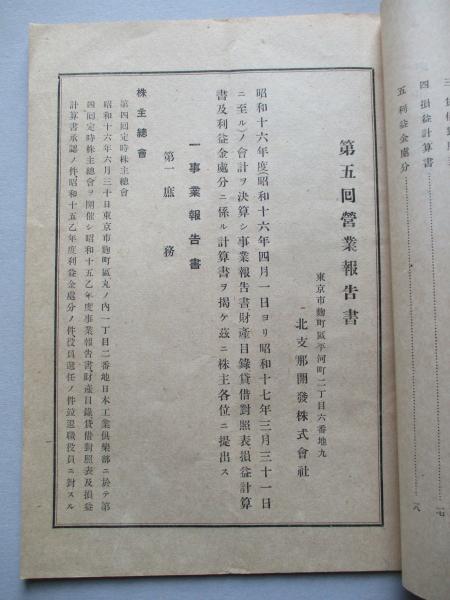 三 貸借對照表
四 損益計算書 一七
五 利益金處分 一八
第五回營業報告書
東京市麴町區平河町二丁目六番地九
北支那開發株式會社
昭和十六年度(昭和十六年四月一日ヨリ昭和十七年三月三十一日
ニ至ル)ノ會計ヲ決算シ事業報告書財產目錄貸借對照表損益計算
書及利益金處分ニ係ル計算書ヲ揭ケ茲ニ株主各位ニ提出ス
一 事業報告書
第一 庶務
株主總會
第四回定時株主總會
昭和十六年六月三十日東京市麴町區丸ノ內一丁目二番地日本工業俱樂部ニ於テ第
四回定時株主總會ヲ開催シ昭和十五乙年度事業報告書、財產目錄貸借對照表及損益
計算書承認ノ件昭和十五乙年度利益金處分ノ件、役員選任ノ件竝退職役員ニ對スル